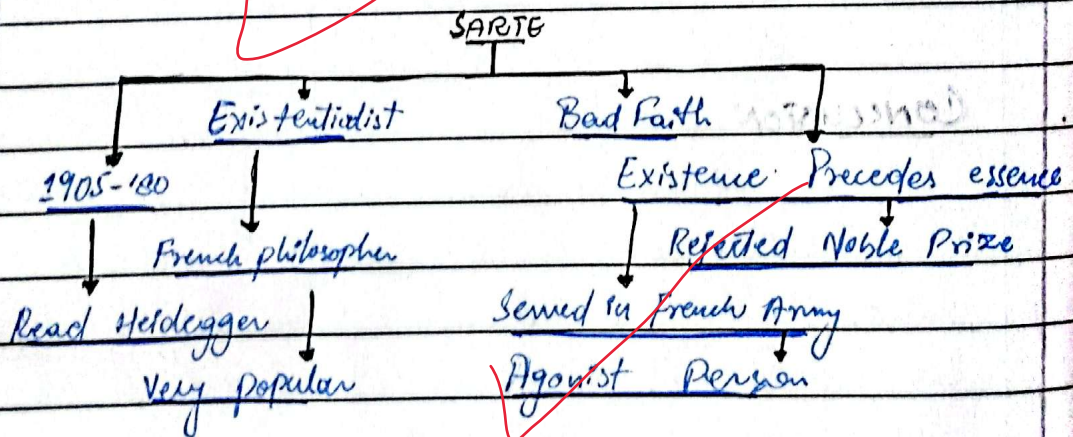 SARTE
Existentialist Bad Faith
1905-'80 Existence Precedes essence
French philosopher Rejected Noble Prize
Read Heidegger Served in French Army
Very popular Agonist Person